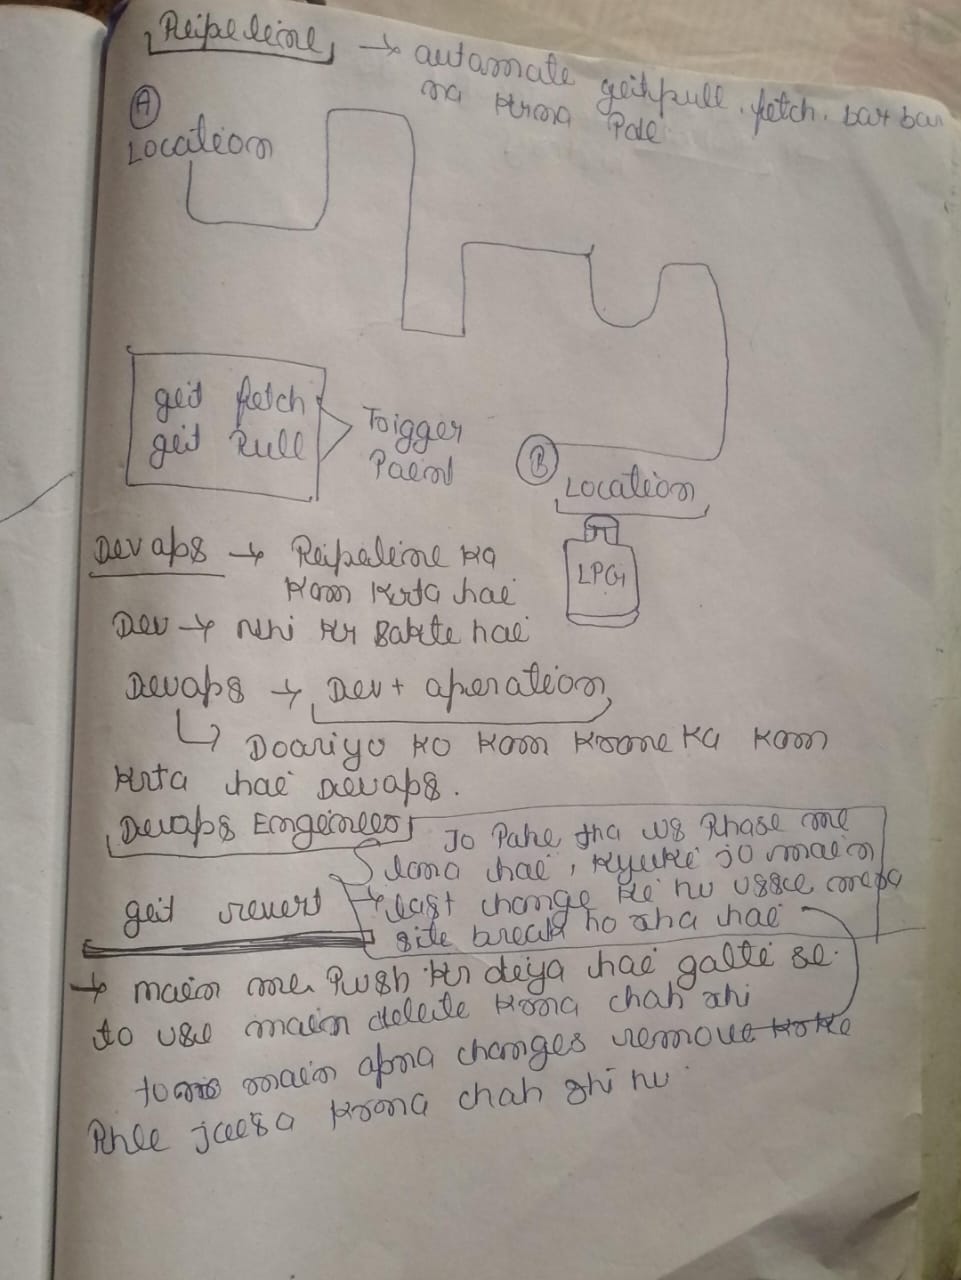 Peipeleine → automate geitpull. fetch. bar bar
na krna Pade
A
Location
geit fetch
geit Pull
Trigger
Paeint
B
Location
LPG
Devops → Peipeleine ka
kam krta hai
Dev → nhi kr sakte hai
Devops → Dev + operation
Dooriyo ko kam krne ka kam
krta hai Devops.
Devops Engineer
Jo Pahle tha us Phase me
lana hai, kyuki jo main
geit revert
last change ki hu usse mera
site break ho rha hai
→ main me Push kr deiya hai galti se.
to use main delete krna chah rhi
main apna changes remove krke
Phle jaisa krna chah rhi hu.